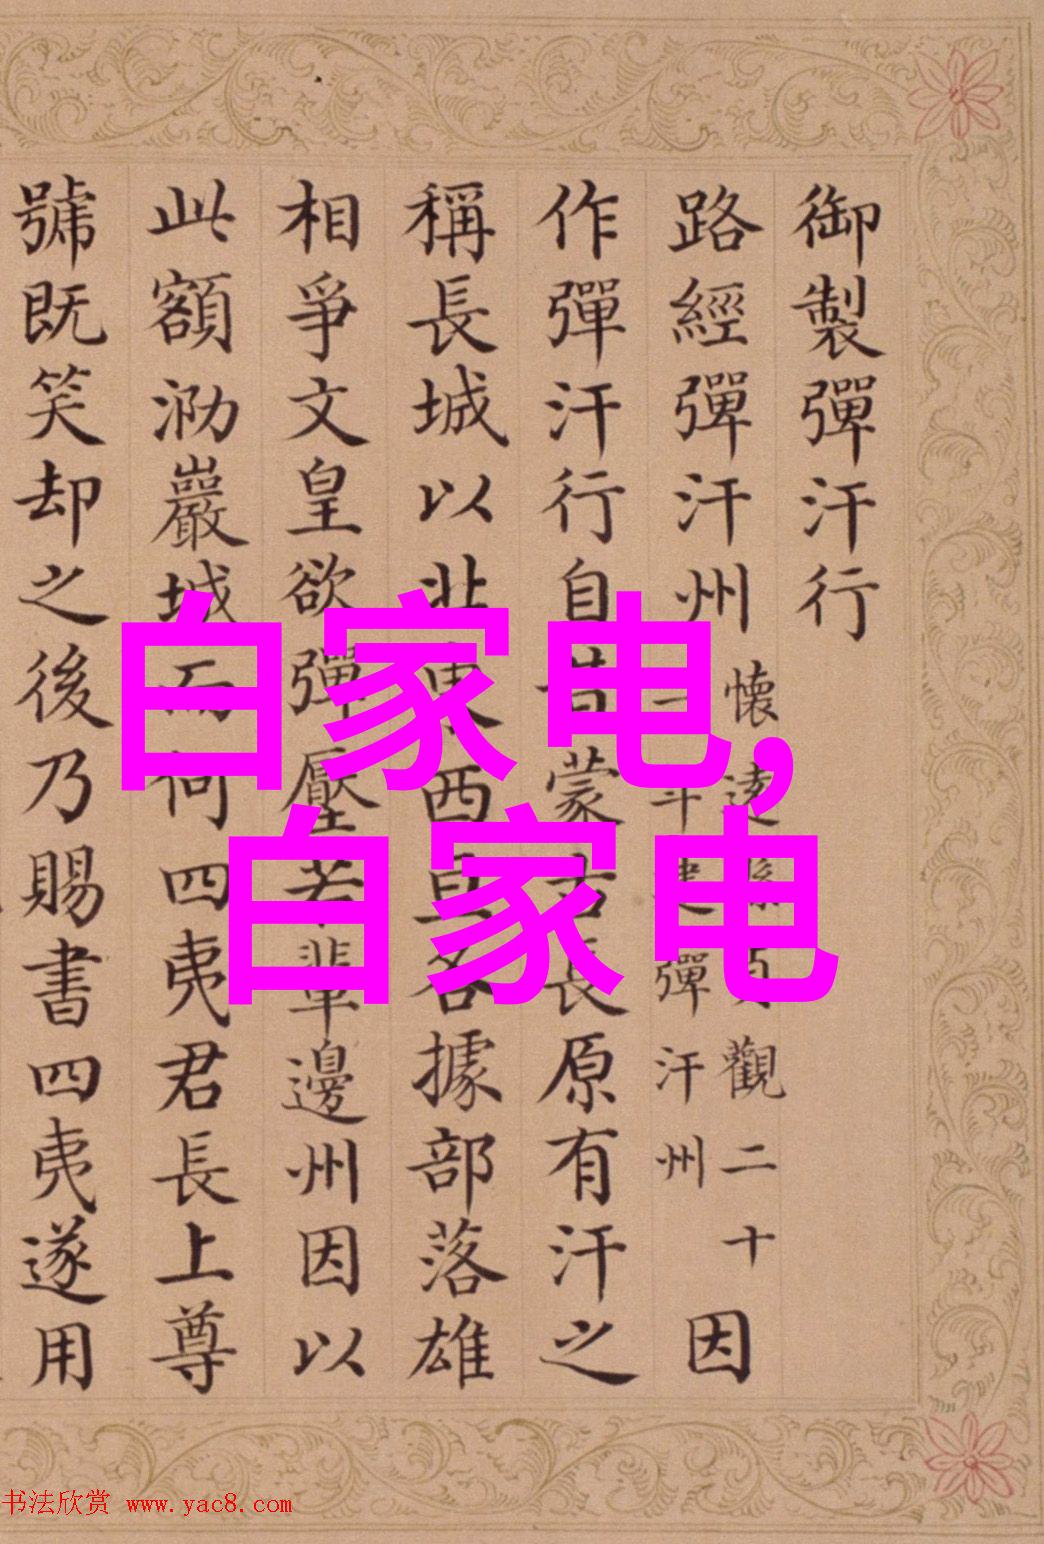 御製彈汗行
路經彈汗州
懷遠
觀二十
彈汗州
因
作彈汗行自昔蒙古長原有汗之
稱長城以北東西且各據部落雄
相爭文皇欲彈壓若輩邊州因以
此額泐巖城而何四夷君長上尊
號既笑却之後乃賜書四夷遂用
白家电,
白家电
书法欣赏 www.yac8.com